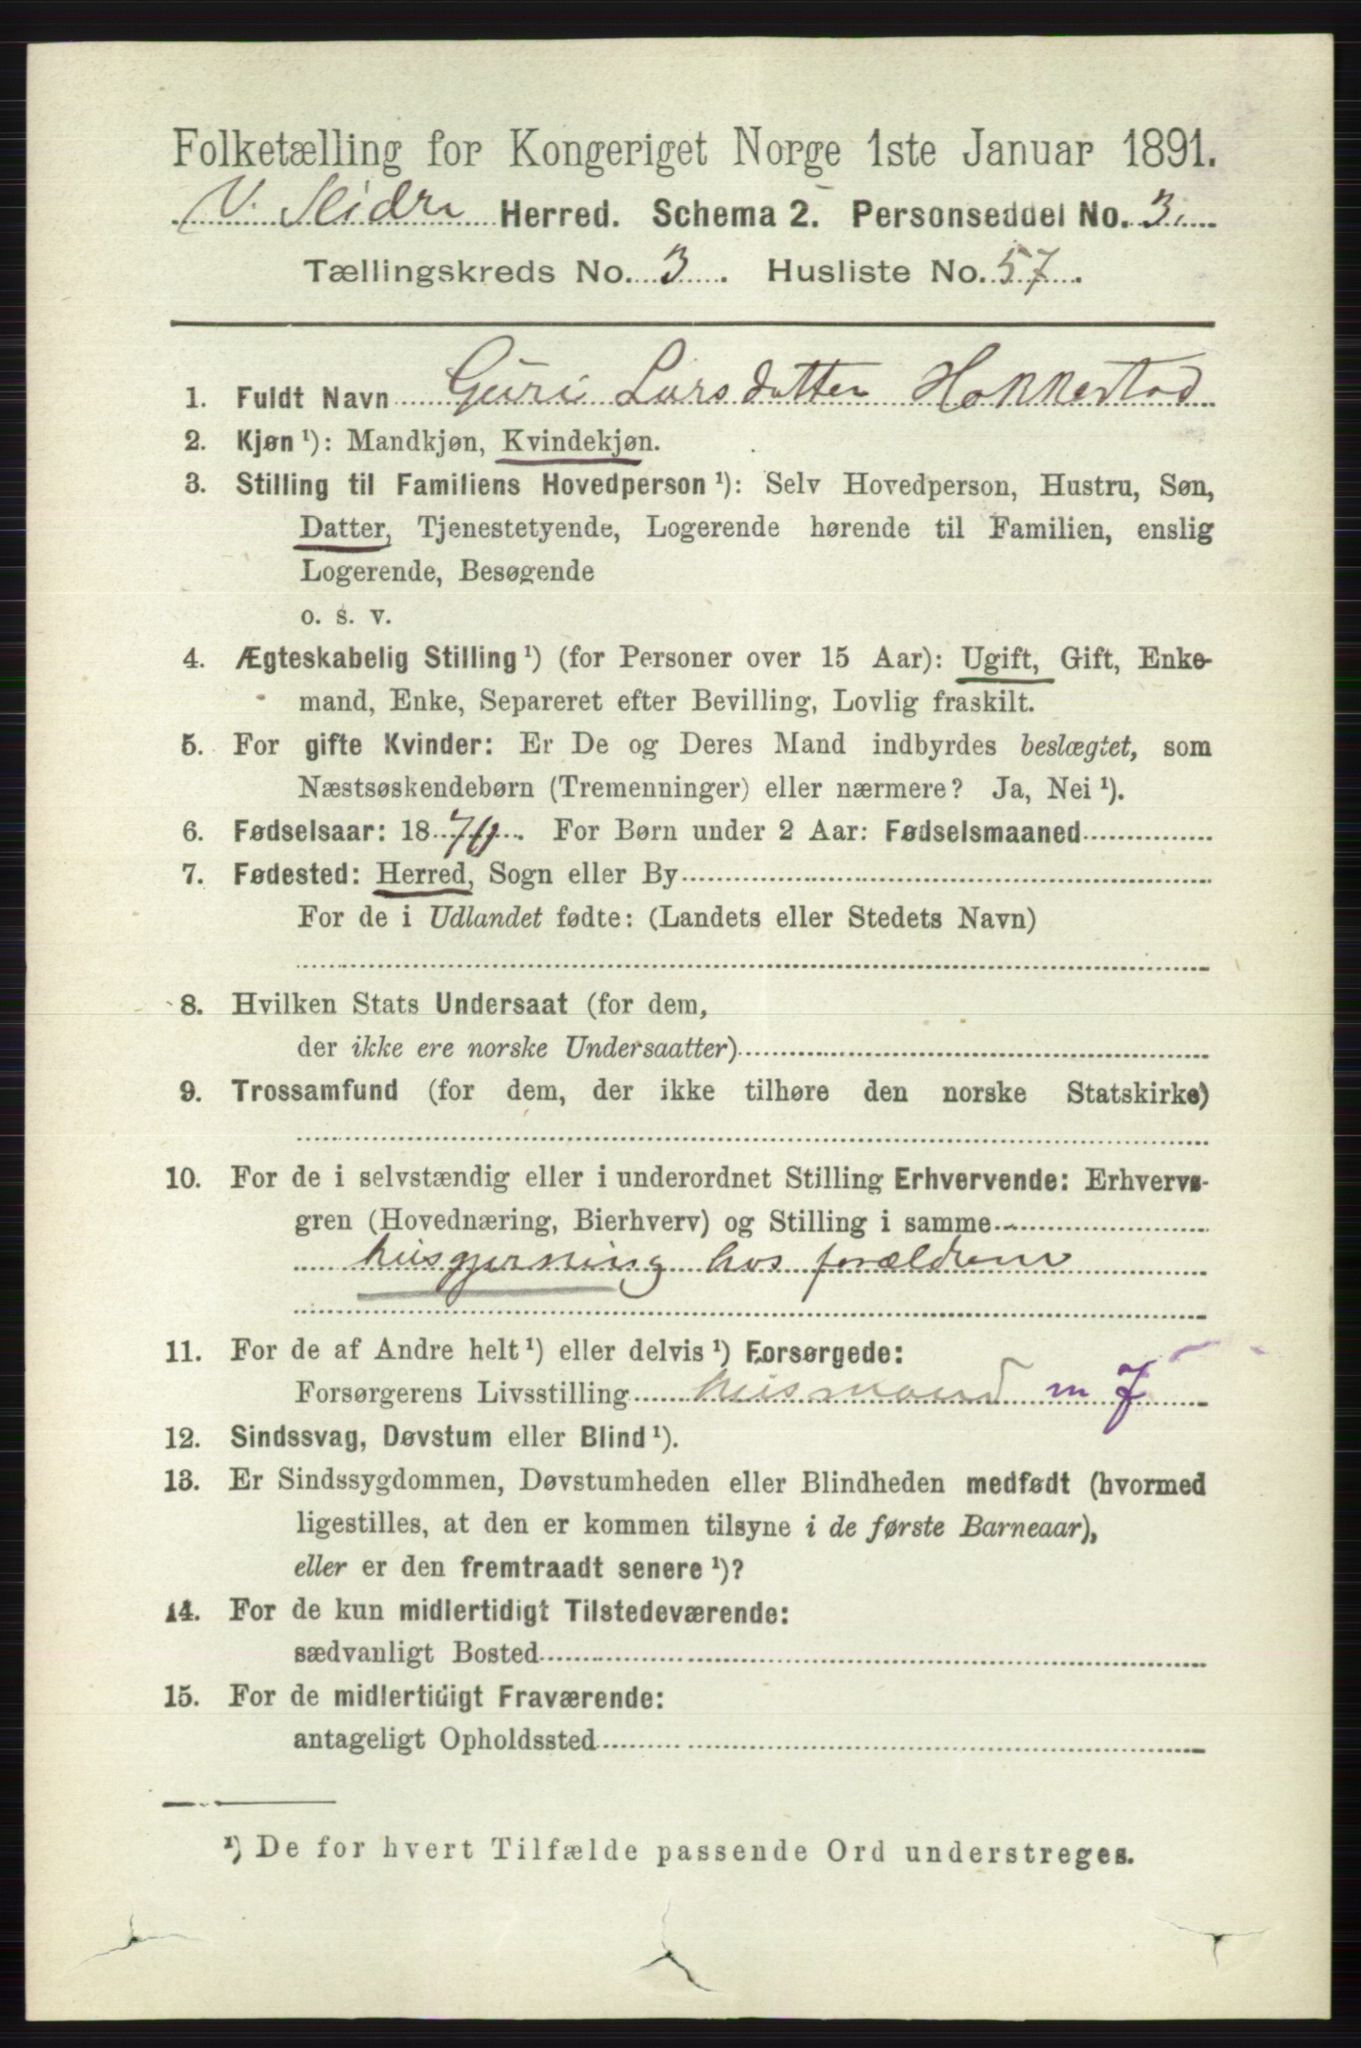 Folketælling for Kongeriget Norge 1ste Januar 1891.
V. Slidre Herred. Schema 2. Personseddel No. 3.
Tællingskreds No. 3. Husliste No. 57.
1. Fuldt Navn Guri Larsdatter Hakkestad
2. Kjøn ¹): Mandkjøn, Kvindekjøn.
3. Stilling til Familiens Hovedperson ¹): Selv Hovedperson, Hustru, Søn,
Datter, Tjenestetyende, Logerende hørende til Familien, enslig
Logerende, Besøgende
o. s. v.
4. Ægteskabelig Stilling ¹) (for Personer over 15 Aar): Ugift, Gift, Enke-
mand, Enke, Separeret efter Bevilling, Lovlig fraskilt.
5. For gifte Kvinder: Er De og Deres Mand indbyrdes beslægtet, som
Næstsøskendebørn (Tremenninger) eller nærmere? Ja, Nei ¹).
6. Fødselsaar: 18 For Børn under 2 Aar: Fødselsmaaned
7. Fødested: Herred, Sogn eller By
For de i Udlandet fødte: (Landets eller Stedets Navn)
8. Hvilken Stats Undersaat (for dem,
der ikke ere norske Undersaatter)
9. Trossamfund (for dem, der ikke tilhøre den norske Statskirke)
10. For de i selvstændig eller i underordnet Stilling Erhvervende: Erhvervs-
gren (Hovednæring, Bierhverv) og Stilling i samme
husgjerning hos forældrene
11. For de af Andre helt ¹) eller delvis ¹) Forsørgede:
Forsørgerens Livsstilling husmand m 7
12. Sindssvag, Døvstum eller Blind ¹).
13. Er Sindssygdommen, Døvstumheden eller Blindheden medfødt (hvormed
ligestilles, at den er kommen tilsyne i de første Barneaar),
eller er den fremtraadt senere ¹)?
14. For de kun midlertidigt Tilstedeværende:
sædvanligt Bosted
15. For de midlertidigt Fraværende:
antageligt Opholdssted
¹) De for hvert Tilfælde passende Ord understreges.